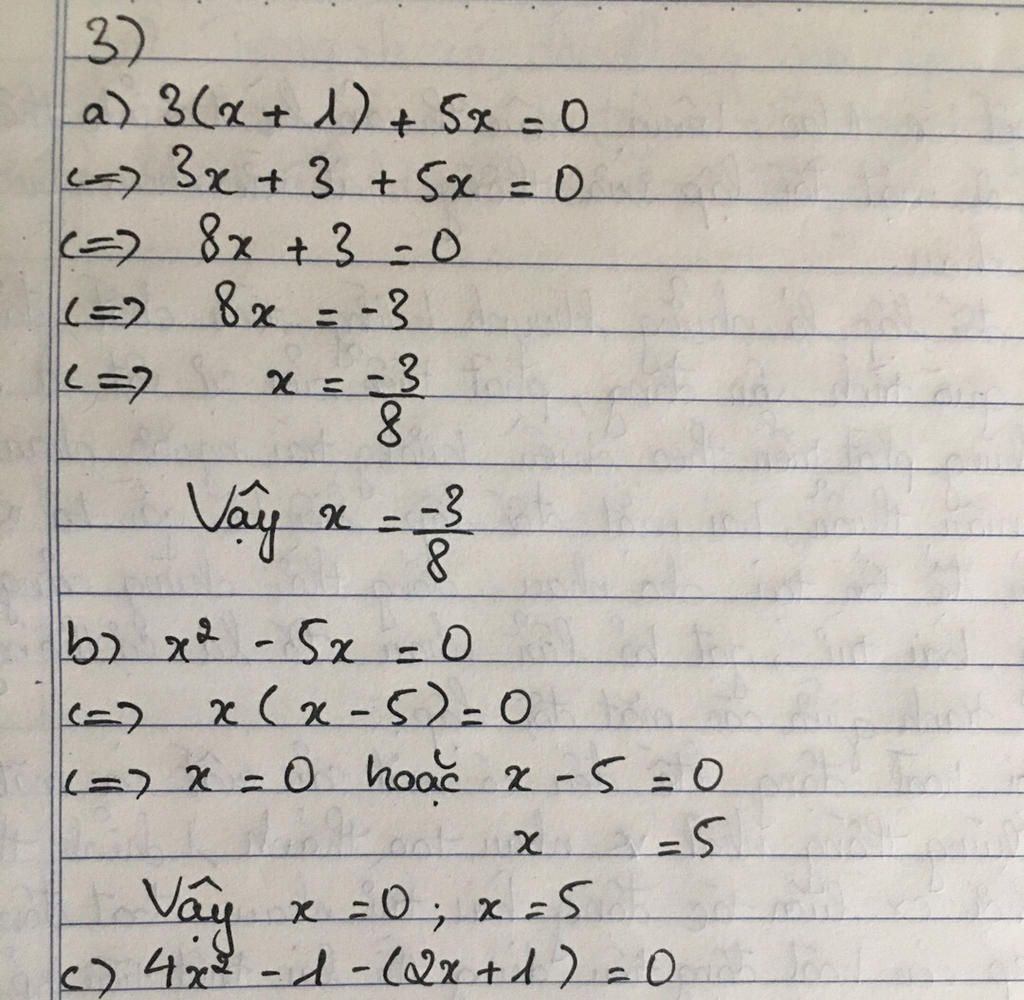 3)
a) 3(x + 1) + 5x = 0
<=> 3x + 3 + 5x = 0
<=> 8x + 3 = 0
<=> 8x = -3
<=> x = -3/8
Vậy x = -3/8
b) x² - 5x = 0
<=> x(x - 5) = 0
<=> x = 0 hoặc x - 5 = 0
x = 5
Vậy x = 0; x = 5
c) 4x² - 1 - (2x + 1) = 0